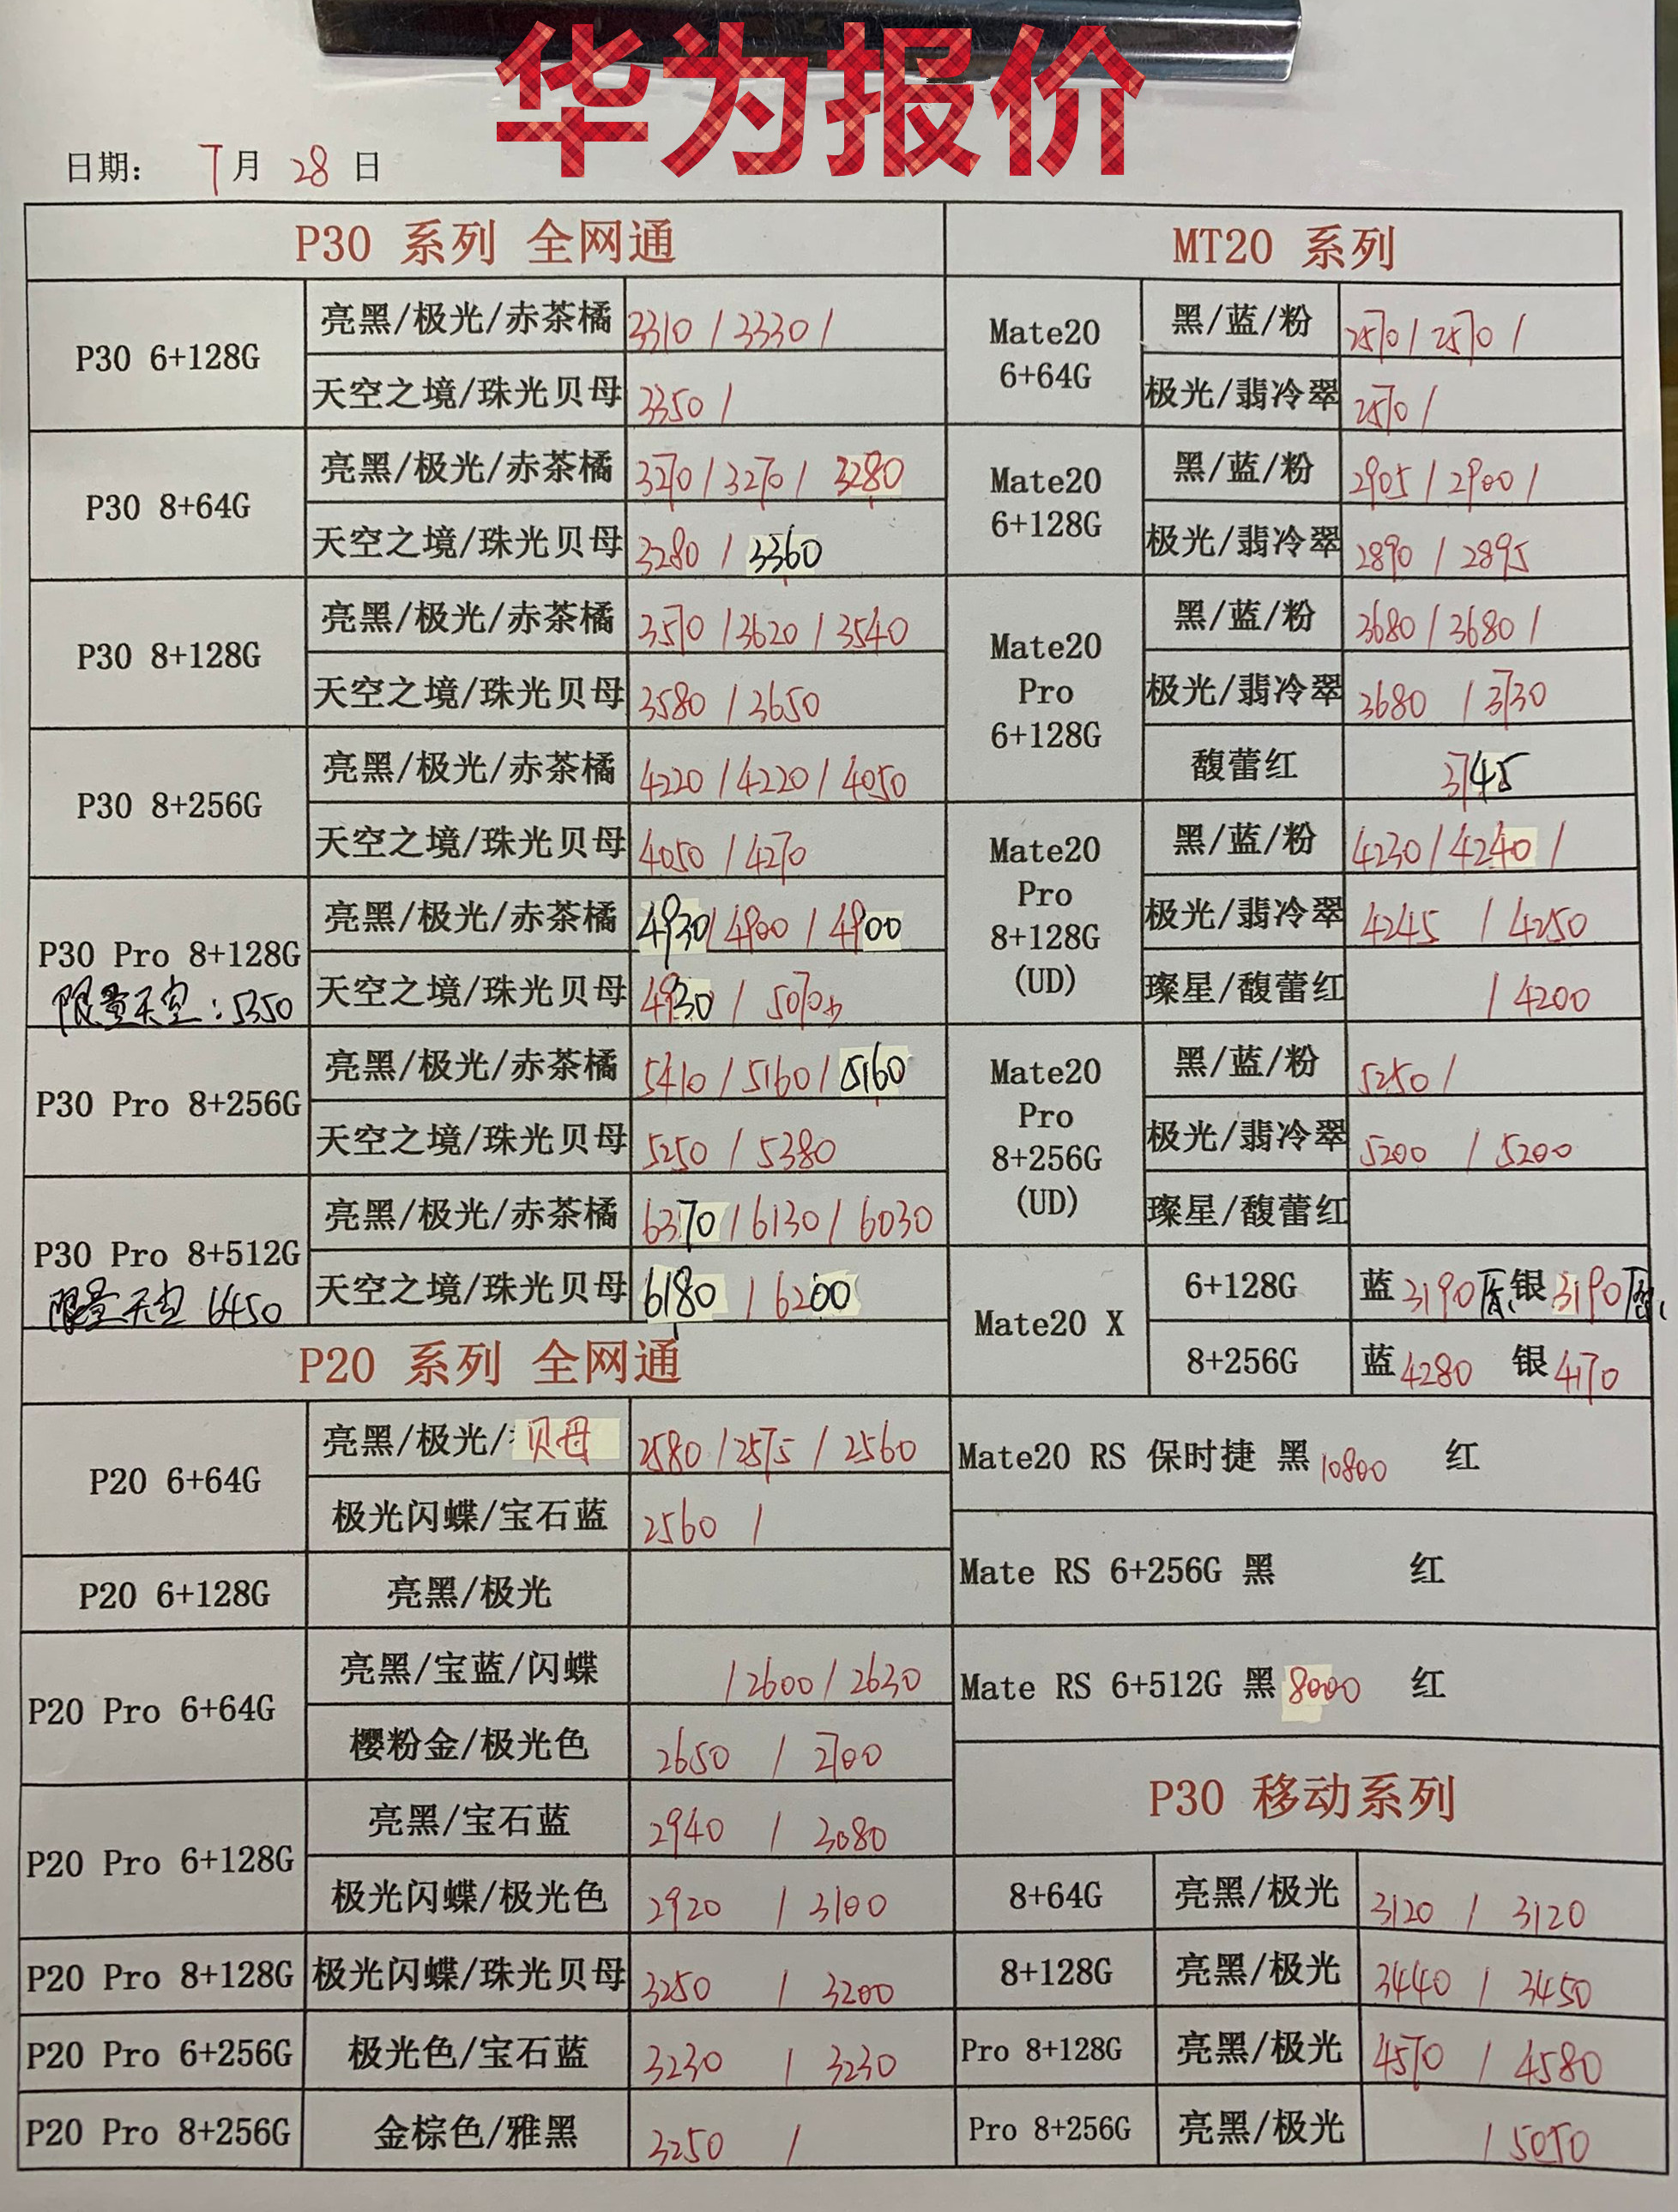 华为报价
日期： 7月 28 日
P30 系列 全网通
P30 6+128G
亮黑/极光/赤茶橘 3310 / 3330 /
天空之境/珠光贝母 3350 /
P30 8+64G
亮黑/极光/赤茶橘 3270 / 3270 / 3280
天空之境/珠光贝母 3280 / 3360
P30 8+128G
亮黑/极光/赤茶橘 3570 / 3620 / 3540
天空之境/珠光贝母 3580 / 3650
P30 8+256G
亮黑/极光/赤茶橘 4220 / 4220 / 4050
天空之境/珠光贝母 4050 / 4270
P30 Pro 8+128G
限量天空：5350
亮黑/极光/赤茶橘 4930 / 4900 / 4900
天空之境/珠光贝母 4930 / 5070
P30 Pro 8+256G
亮黑/极光/赤茶橘 5410 / 5160 / 5160
天空之境/珠光贝母 5250 / 5380
P30 Pro 8+512G
限量天空 6450
亮黑/极光/赤茶橘 6370 / 6130 / 6030
天空之境/珠光贝母 6180 / 6200
P20 系列 全网通
P20 6+64G
亮黑/极光/贝母 2580 / 2575 / 2560
极光闪蝶/宝石蓝 2560 /
P20 6+128G 亮黑/极光
P20 Pro 6+64G
亮黑/宝蓝/闪蝶 / 2600 / 2630
樱粉金/极光色 2650 / 2700
P20 Pro 6+128G
亮黑/宝石蓝 2940 / 3080
极光闪蝶/极光色 2920 / 3100
P20 Pro 8+128G 极光闪蝶/珠光贝母 3250 / 3200
P20 Pro 6+256G 极光色/宝石蓝 3230 / 3230
P20 Pro 8+256G 金棕色/雅黑 3250 /
MT20 系列
Mate20
6+64G
黑/蓝/粉 2570 / 2570 /
极光/翡冷翠 2570 /
Mate20
6+128G
黑/蓝/粉 2905 / 2900 /
极光/翡冷翠 2890 / 2895
Mate20
Pro
6+128G
黑/蓝/粉 3680 / 3680 /
极光/翡冷翠 3680 / 3730
馥蕾红 3745
Mate20
Pro
8+128G
(UD)
黑/蓝/粉 4230 / 4240 /
极光/翡冷翠 4245 / 4250
璨星/馥蕾红 / 4200
Mate20
Pro
8+256G
(UD)
黑/蓝/粉 5250 /
极光/翡冷翠 5200 / 5200
璨星/馥蕾红
Mate20 X
6+128G 蓝 3190 银 3190
8+256G 蓝 4280 银 4170
Mate20 RS 保时捷 黑 10800 红
Mate RS 6+256G 黑 红
Mate RS 6+512G 黑 8000 红
P30 移动系列
8+64G 亮黑/极光 3120 / 3120
8+128G 亮黑/极光 3440 / 3450
Pro 8+128G 亮黑/极光 4570 / 4580
Pro 8+256G 亮黑/极光 / 5050